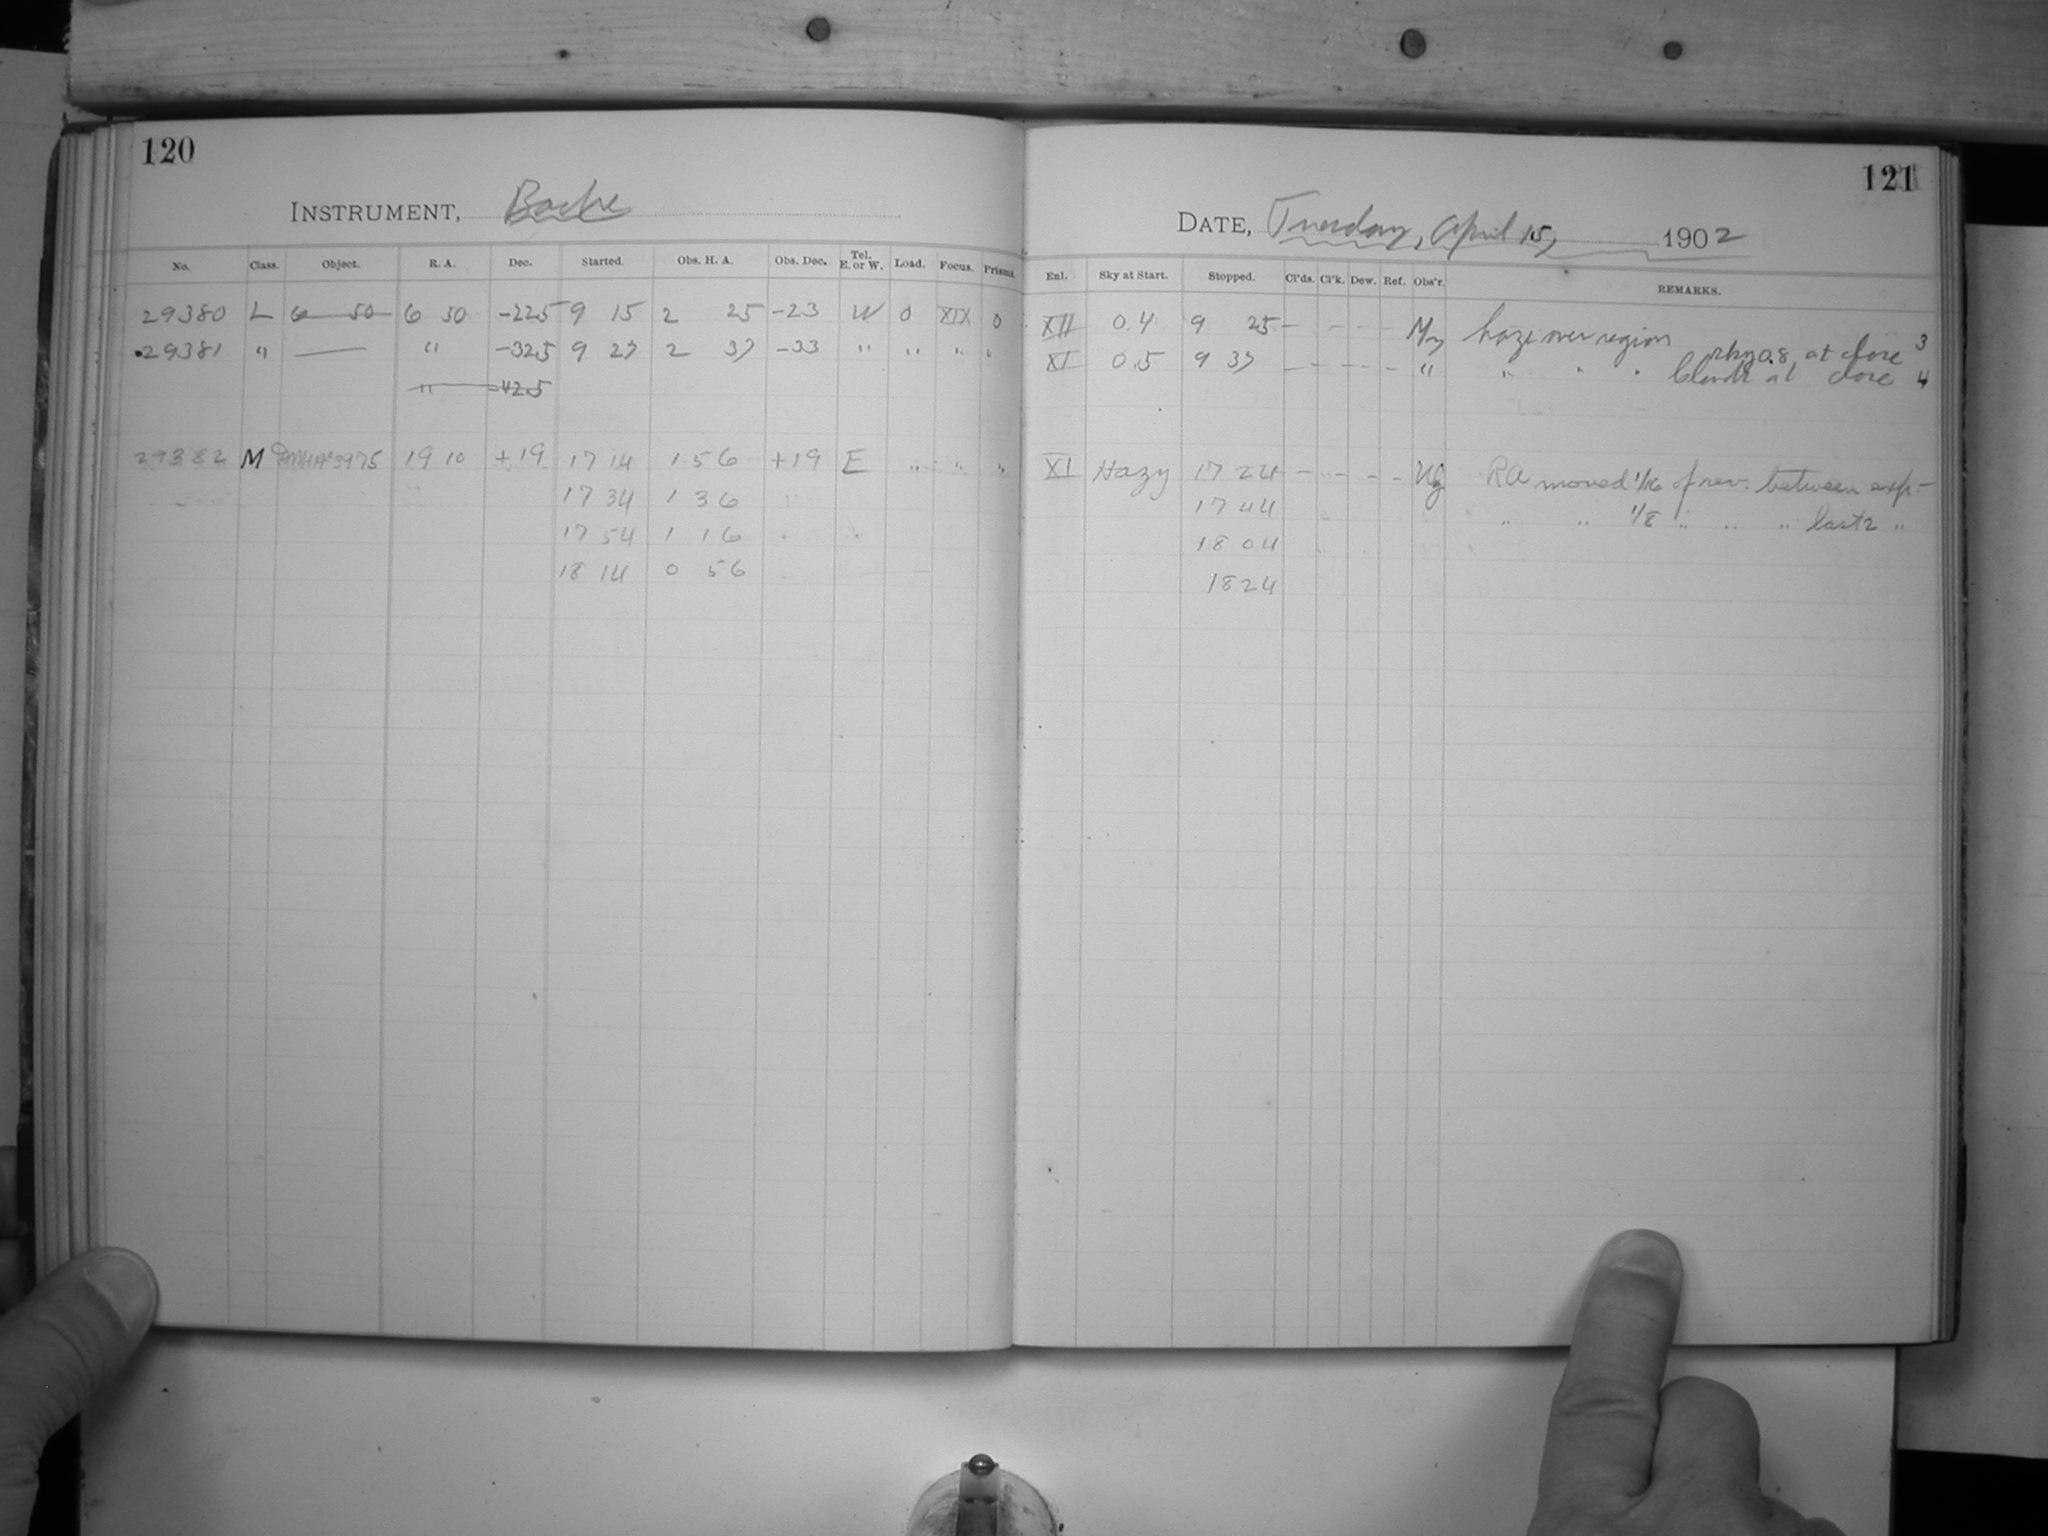 120
INSTRUMENT, Bache
No. Class. Object. R. A. Dec. Started. Obs. H. A. Obs. Dec. Tel. E. or W. Load. Focus. Prisms.
29380 L 6 50 6 50 -22.5 9 15 2 25 -23 W 0 XIX 0
29381 " — " -32.5 9 27 2 37 -33 " " " "
" -42.5
29382 M 3975 19 10 +19 17 14 1 56 +19 E " " "
17 34 1 36
17 54 1 16
18 14 0 56
121
DATE, Tuesday, April 15, 1902
Enl. Sky at Start. Stopped. Cl'ds. Cl'k. Dew. Ref. Obs'r. REMARKS.
XII 0.4 9 25 - - - - My haze over region sky 0.8 at close 3
XI 0.5 9 37 - - - - " " " " Clouds at close 4
XI Hazy 17 24 - - - - RA moved 1/16 of rev. between exp.-
17 44 " " 1/8 " " " last 2 "
18 04
18 24